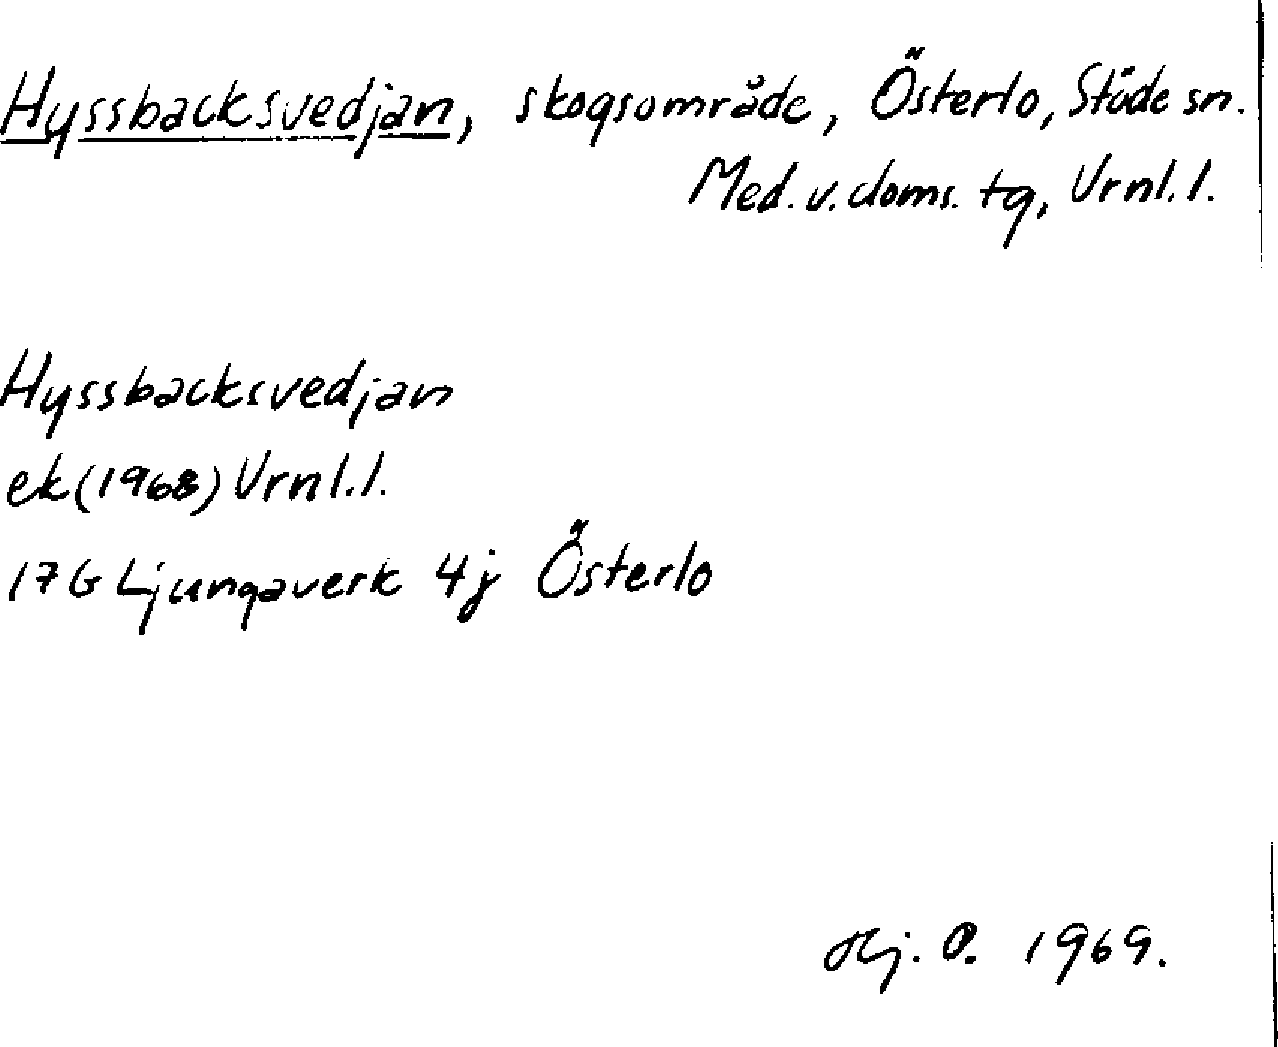 Hyssbacksvedjan, skogsområde, Österlo, Stöde sn.
Med. v. doms. tg, Vrnl. l.
Hyssbacksvedjan
ek (1968) Vrnl. l.
17G Ljungaverk 4j Österlo
Hj. P. 1969.